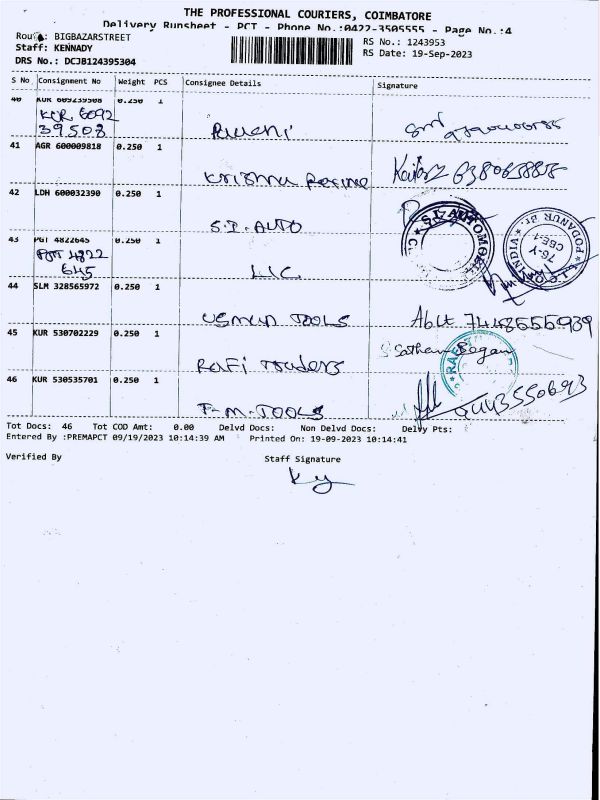 THE PROFESSIONAL COURIERS, COIMBATORE
Delivery Runsheet - PCT - Phone No.:0422-3505555 - Page No.:4
Route: BIGBAZARSTREET
Staff: KENNADY
DRS No.: DCJB124395304
RS No.: 1243953
RS Date: 19-Sep-2023
S No Consignment No Weight PCS Consignee Details Signature
40 KUR 609239508 0.250 1
KUR 6092
39508
41 AGR 600009818 0.250 1
Krishna
42 LDH 600032390 0.250 1
S.I. AUTO
S.I.Z AUTOMOBIL
43 PGT 4822645 0.250 1
PGT 4822
645
LIC
PODANUR BR.
76-Y
CBE-1
INDIA
44 SLM 328565972 0.250 1
USMAN TOOLS
45 KUR 530702229 0.250 1
RAFI Traders
Sathem Begam
46 KUR 530535701 0.250 1
F.M.TOOLS
Tot Docs: 46 Tot COD Amt: 0.00 Delvd Docs: Non Delvd Docs: Delvy Pts:
Entered By :PREMAPCT 09/19/2023 10:14:39 AM Printed On: 19-09-2023 10:14:41
Verified By Staff Signature